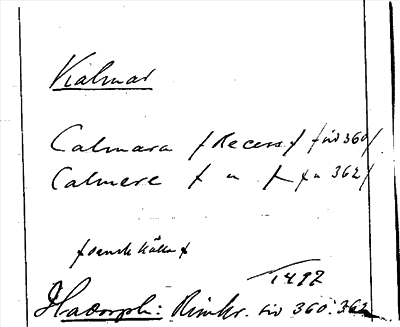 Kalmar
Calmara / Recess. / sid 360 /
Calmere / " / " 362 /
/ dansk källa /
1497
Hadorph: Rimkr. sid 360. 362